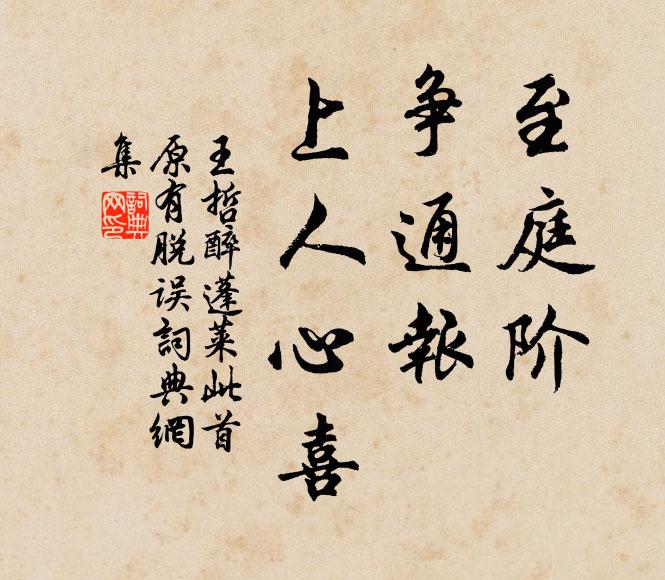 至庭阶
争通報
上人心喜
王哲醉蓬莱此首
原有脱误詞典網
集
詞典网印